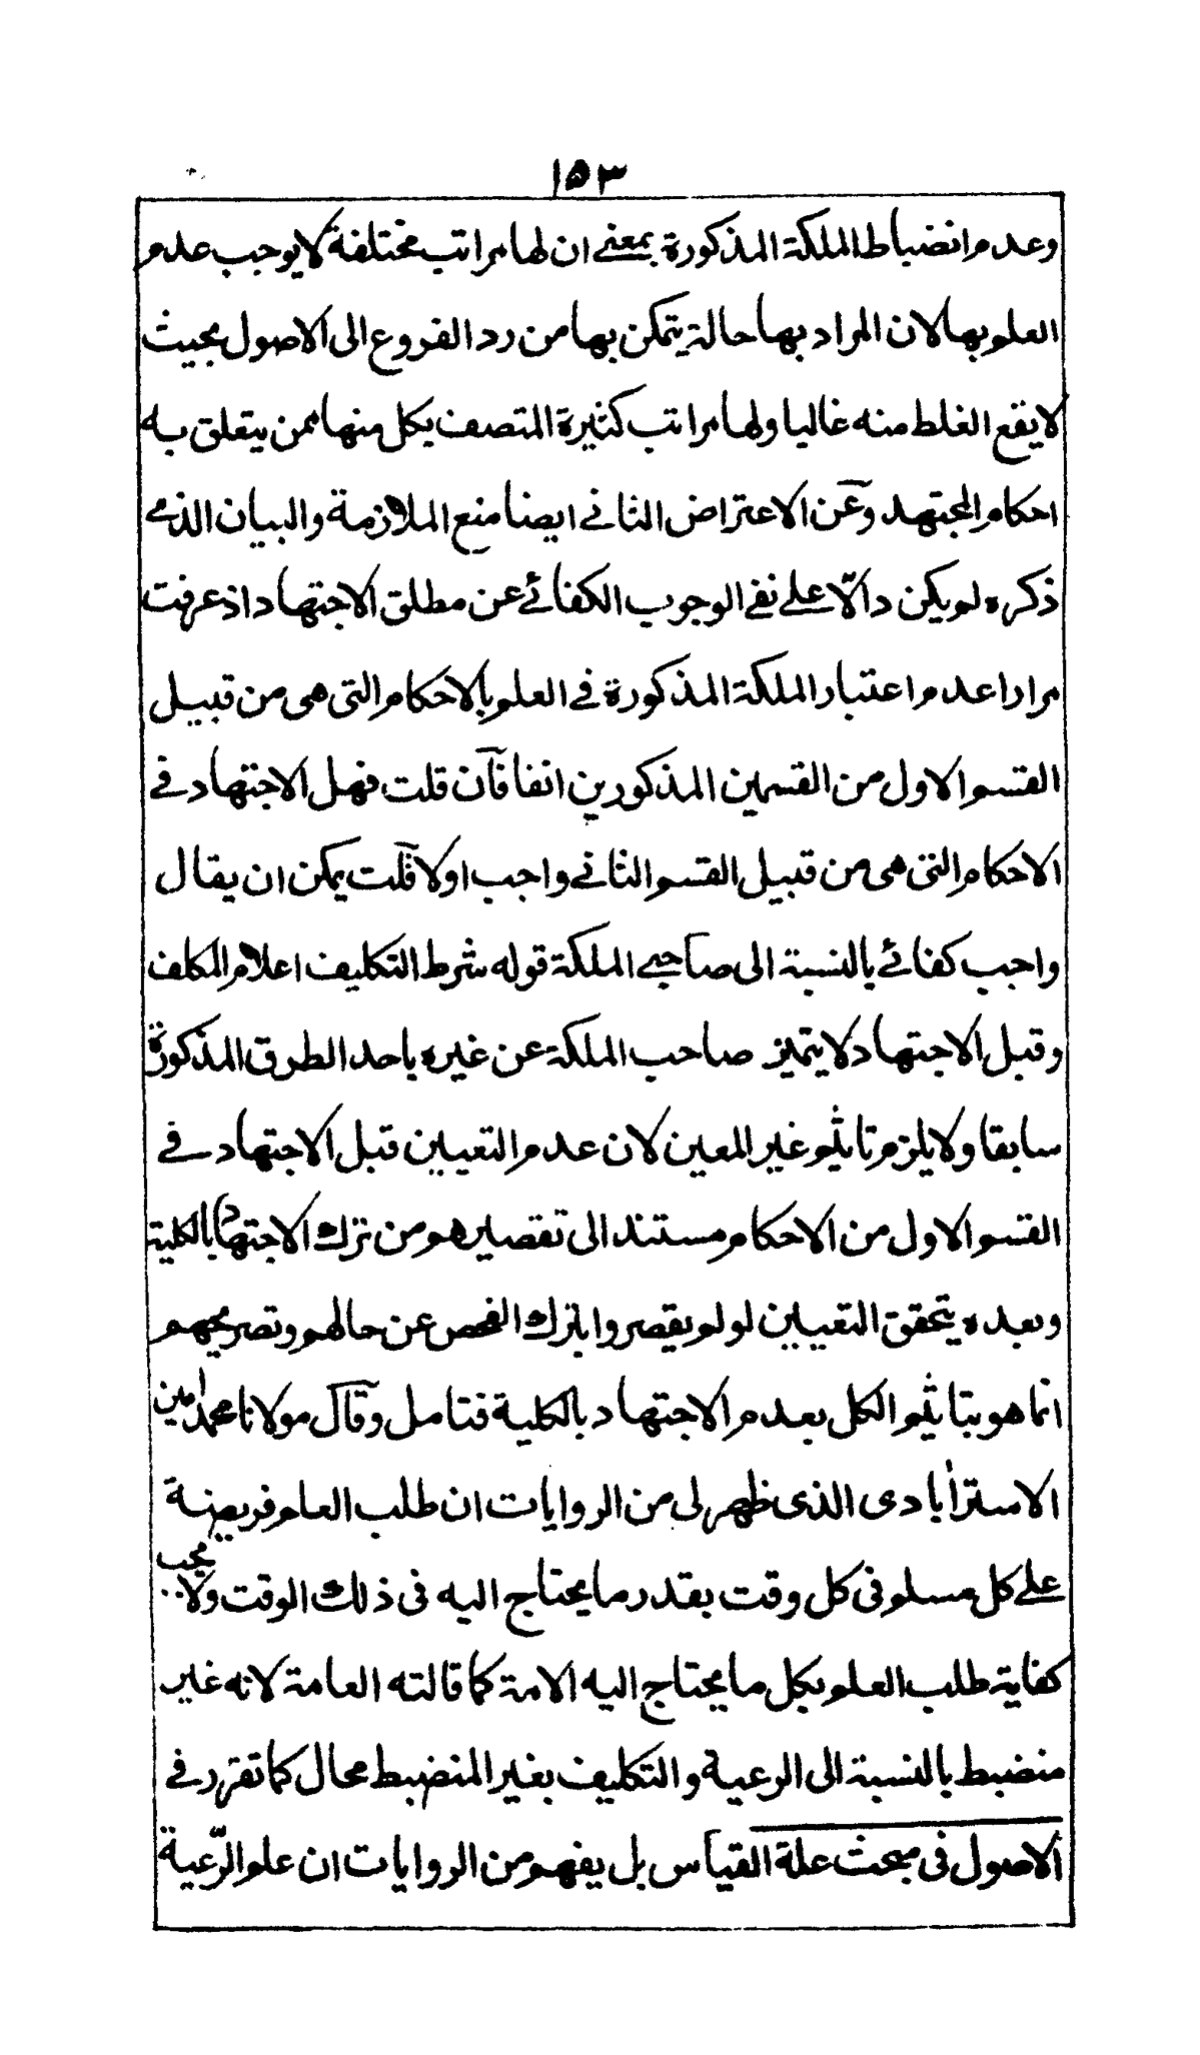 ١٥٣
وعدم انضباط الملكة المذكورة بمعنے ان لها مراتب مختلفة لا يوجب عدم
العلم بها لان المراد بها حالة يتمكن بها من رد الفروع الى الاصول بحيث
لا يقع الغلط منه غالبا ولها مراتب كثيرة المتصف بكل منها ممن يتعلق به
احكام المجتهد وعن الاعتراض الثانے ايضا منع الملازمة والبيان الذے
ذكره لم يكن دالّا علے نفے الوجوب الكفائے عن مطلق الاجتهاد اذ عرفت
مرارا عدم اعتبار الملكة المذكورة فے العلم بالاحكام التى هى من قبيل
القسم الاول من القسمين المذكورين انفا فان قلت فهل الاجتهاد فے
الاحكام التى هى من قبيل القسم الثانے واجب اولا قلت يمكن ان يقال
واجب كفائے بالنسبة الى صاحبے الملكة قوله شرط التكليف اعلام المكلف
وقبل الاجتهاد لا يتميز صاحب الملكة عن غيره باحد الطرق المذكورة
سابقا ولا يلزم تاثيم غير المعين لان عدم التعيين قبل الاجتهاد فے
القسم الاول من الاحكام مستند الى تقصيرهم من ترك الاجتهاد بالكلية
وبعده يتحقق التعيين لو لم يقصروا بترك الفحص عن حالهم وتصريحهم
انما هو بتاثيم الكل بعدم الاجتهاد بالكلية فتامل وقال مولانا محمد امين
الاسترابادى الذى ظهر لى من الروايات ان طلب العلم فريضة
علے كل مسلم فى كل وقت بقدر ما يحتاج اليه فى ذلك الوقت ولا يجب
كفاية طلب العلم بكل ما يحتاج اليه الامة كما قالته العامة لانه غير
منضبط بالنسبة الى الرعية والتكليف بغير المنضبط محال كما تقرر فے
الاصول فى مبحث علة القياس بل يفهم من الروايات ان علم الرّعية